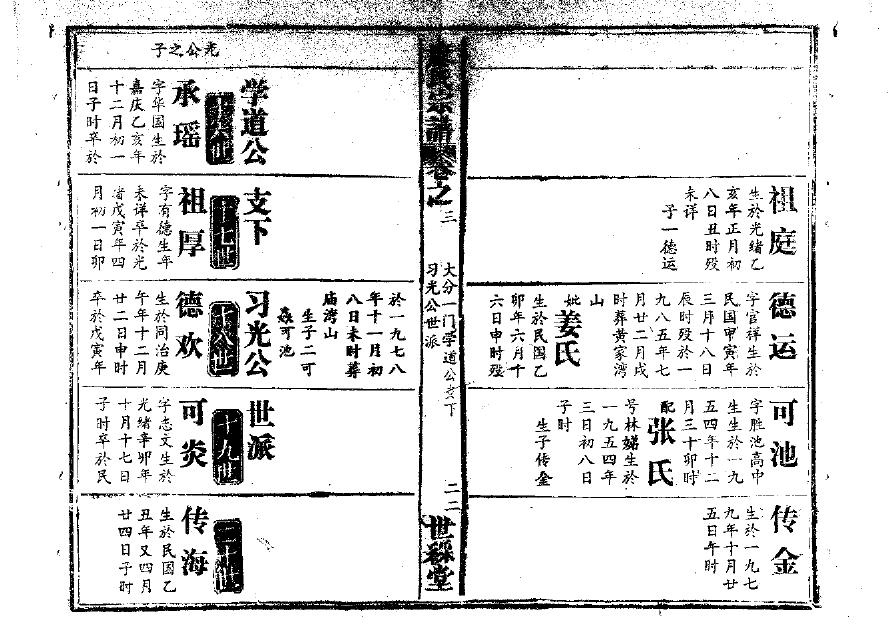 祖庭
生於光緒乙
亥年正月初
八日丑时殁
未详
子一德运
德运
字官祥生於
民国甲寅年
三月十八日
辰时殁於一
九八五年七
月廿二月戌
时葬黄家湾
山
妣姜氏
生於民国乙
卯年六月十
六日申时殁
可池
字胜池高中
生生於一九
五四年十二
月三十卯时
配张氏
号林娣生於
一九五四年
三日初八日
子时
生子传金
传金
生於一九七
九年十月廿
五日午时
氏宗譜卷之三
大分一门学道公支下
习光公世派
二二
世綵堂
於一九七八
年十一月初
八日未时葬
庙湾山
生子二可
炎可池
学道公
支下
习光公
世派
十六世
十七世
十八世
十九世
二十世
光公之子
承瑶
字华国生於
嘉庆乙亥年
十二月初一
日子时卒於
祖厚
字有德生年
未详卒於光
緒戊寅年四
月初一日卯
德欢
生於同治庚
午年十二月
廿二日申时
卒於戊寅年
可炎
字志文生於
光緒辛卯年
十月十七日
子时卒於民
传海
生於民国乙
丑年又四月
廿四日子时